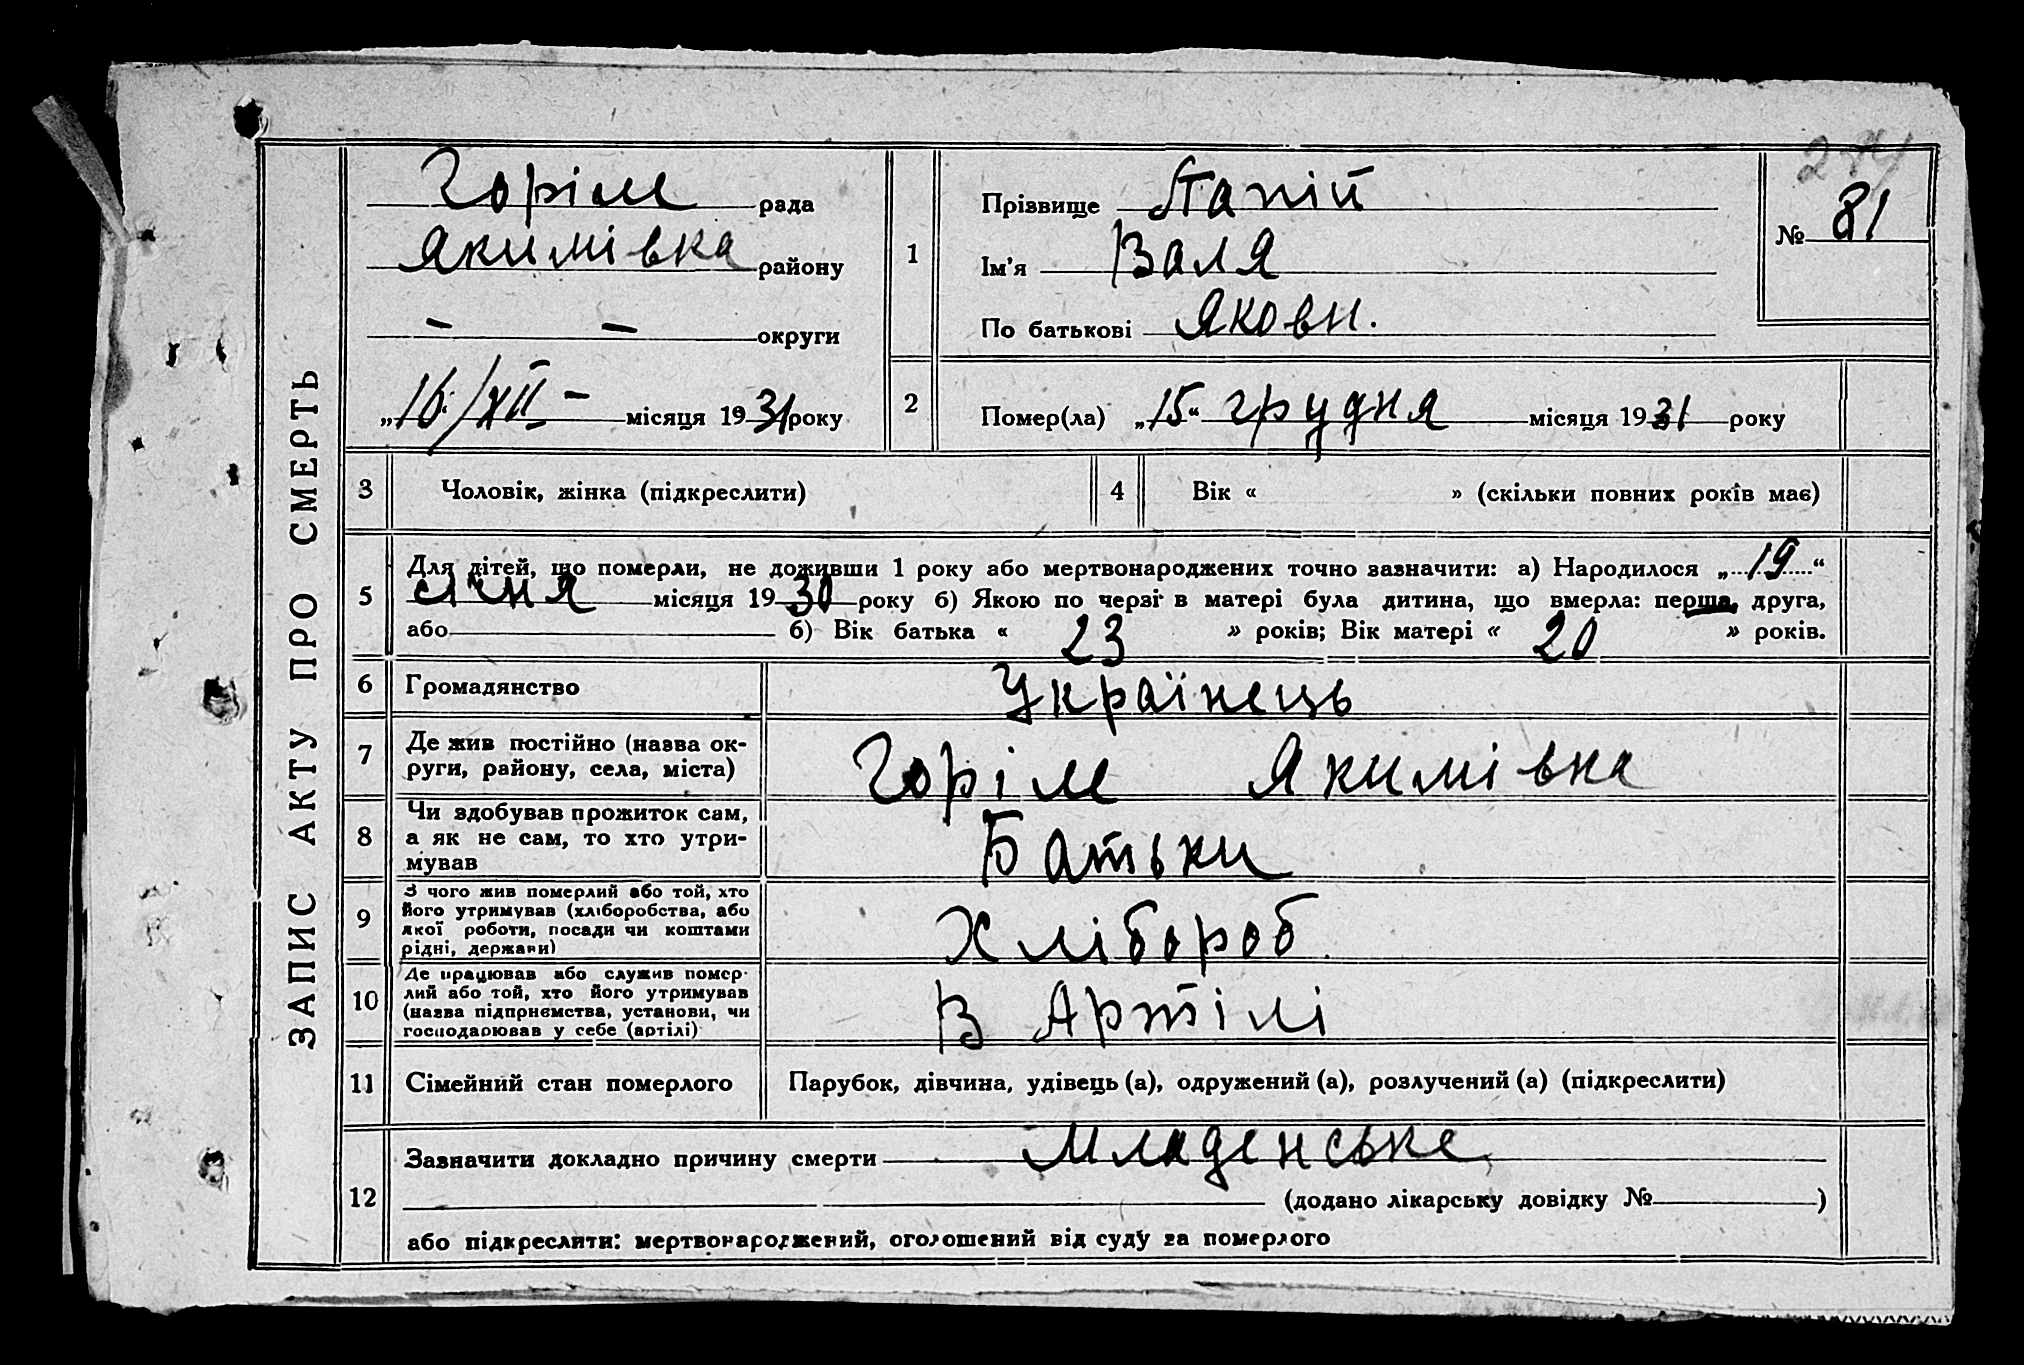 ЗАПИС АКТУ ПРО СМЕРТЬ
Горіле рада
Якимівка району
— — округи
„16/XII – місяця 1931 року
1
Прізвище Папій
Ім'я Валя
По батькові Яковн.
274
№ 81
2
Помер(ла) „15“ грудня місяця 1931 року
3 Чоловік, жінка (підкреслити)
4 Вік « » (скільки повних років має)
5
Для дітей, що померли, не доживши 1 року або мертвонароджених точно зазначити: а) Народилося „19“
січня місяця 1930 року б) Якою по черзі в матері була дитина, що вмерла: перша, друга,
або б) Вік батька « 23 » років; Вік матері « 20 » років.
6 Громадянство Українець
7 Де жив постійно (назва ок-
руги, району, села, міста)
Горіле Якимівка
8 Чи здобував прожиток сам,
а як не сам, то хто утри-
мував
Батьки
9 З чого жив померлий або той, хто
його утримував (хліборобства, або
якої роботи, посади чи коштами
рідні, держави)
Хлібороб
10 Де працював або служив помер-
лий або той, хто його утримував
(назва підприємства, установи, чи
господарював у себе (артілі)
В Артілі
11 Сімейний стан померлого Парубок, дівчина, удівець (а), одружений (а), розлучений (а) (підкреслити)
12
Зазначити докладно причину смерти Младенське
(додано лікарську довідку № )
або підкреслити: мертвонароджений, оголошений від суду за померлого